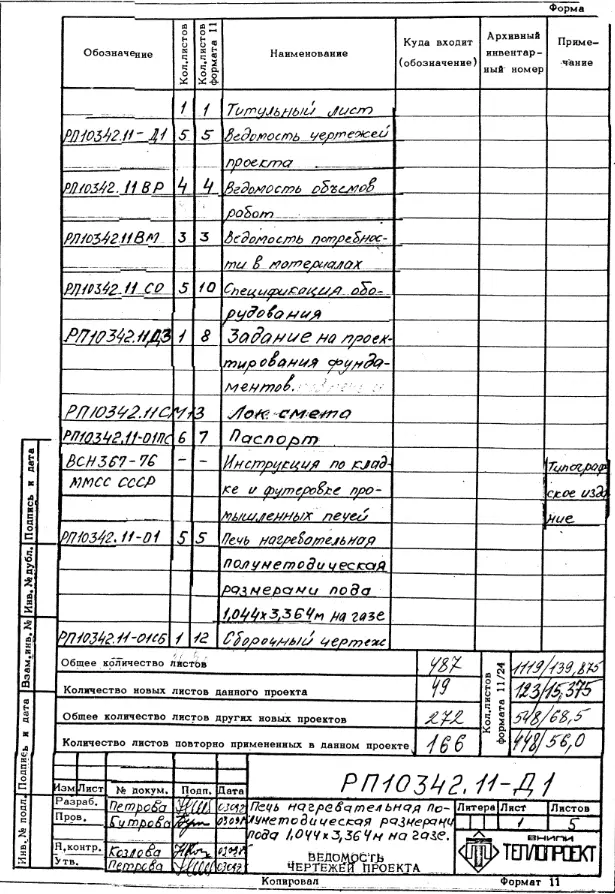 Форма
Обозначение Кол.листов Кол.листов формата 11 Наименование Куда входит (обозначение) Архивный инвентарный номер Примечание
1 1 Титульный лист
РП10342.11-Д1 5 5 Ведомость чертежей
проекта
РП10342.11ВР 4 4 Ведомость объемов
работ
РП10342.11ВМ 3 3 Ведомость потребнос-
ти в материалах
РП10342.11 СО 5 10 Спецификация обо-
рудования
РП10342.11.ДЗ 1 8 Задание на проек-
тирования фунда-
ментов.
РП10342.11СМ 13 Лок. смета
РП10342.11-01ПС 6 7 Паспорт
ВСН367-76 - - Инструкция по клад- Типограф
ММСС СССР ке и футеровке про- ское изда
мышленных печей ние
РП10342.11-01 5 5 Печь нагревательная
полуметодическая
размерами пода
1,044х3,364м на газе
РП10342.11-01СБ 1 12 Сборочный чертеж
Общее количество листов 487 1119/139,875
Количество новых листов данного проекта 49 123/15,375
Общее количество листов других новых проектов 272 548/68,5
Количество листов повторно примененных в данном проекте 166 448/56,0
Кол.листов формата 11/24
Инв. № подл. Подпись и дата Взам.инв. № Инв. № дубл. Подпись и дата
РП10342.11-Д1
Изм Лист № докум. Подп. Дата
Разраб. Петрова
Пров. Бутрова
Н,контр. Козлова
Утв. Петрова
Печь нагревательная по-
луметодическая размерами
пода 1,044х3,364м на газе.
ВЕДОМОСТЬ
ЧЕРТЕЖЕЙ ПРОЕКТА
Литера Лист Листов
1 5
ВНИПИ
ТЕПЛОПРОЕКТ
Копировал Формат 11